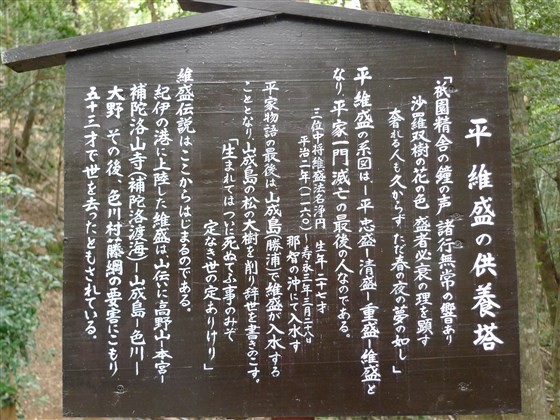 平 維盛の供養塔
「祇園精舎の鐘の声 諸行無常の響あり
沙羅双樹の花の色 盛者必衰の理を顕す
奢れる人も久からず ただ春の夜の夢の如し」
平 維盛の系図は―平 忠盛―清盛―重盛―維盛と
なり、平家一門滅亡の最後の人なのである。
三位中将維盛法名浄円 生年二十七才
平治二年(一一六〇)~寿永三年三月二十八日
那智の沖にて入水す
平家物語の最後は、山成島勝浦で維盛が入水する
こととなり山成島の松の大樹を削り辞世を書きのこす。
「生まれてはつひに死ぬてふ事のみぞ
定なき世の定ありけり」
維盛伝説はここからはじまるのである。
紀伊の港に上陸した維盛は山伝いに高野山―本宮―
補陀洛山寺(補陀洛渡海)―山成島―色川―
大野 その後、色川村藤綱の要害にこもり
五十三才で世を去ったともされている。